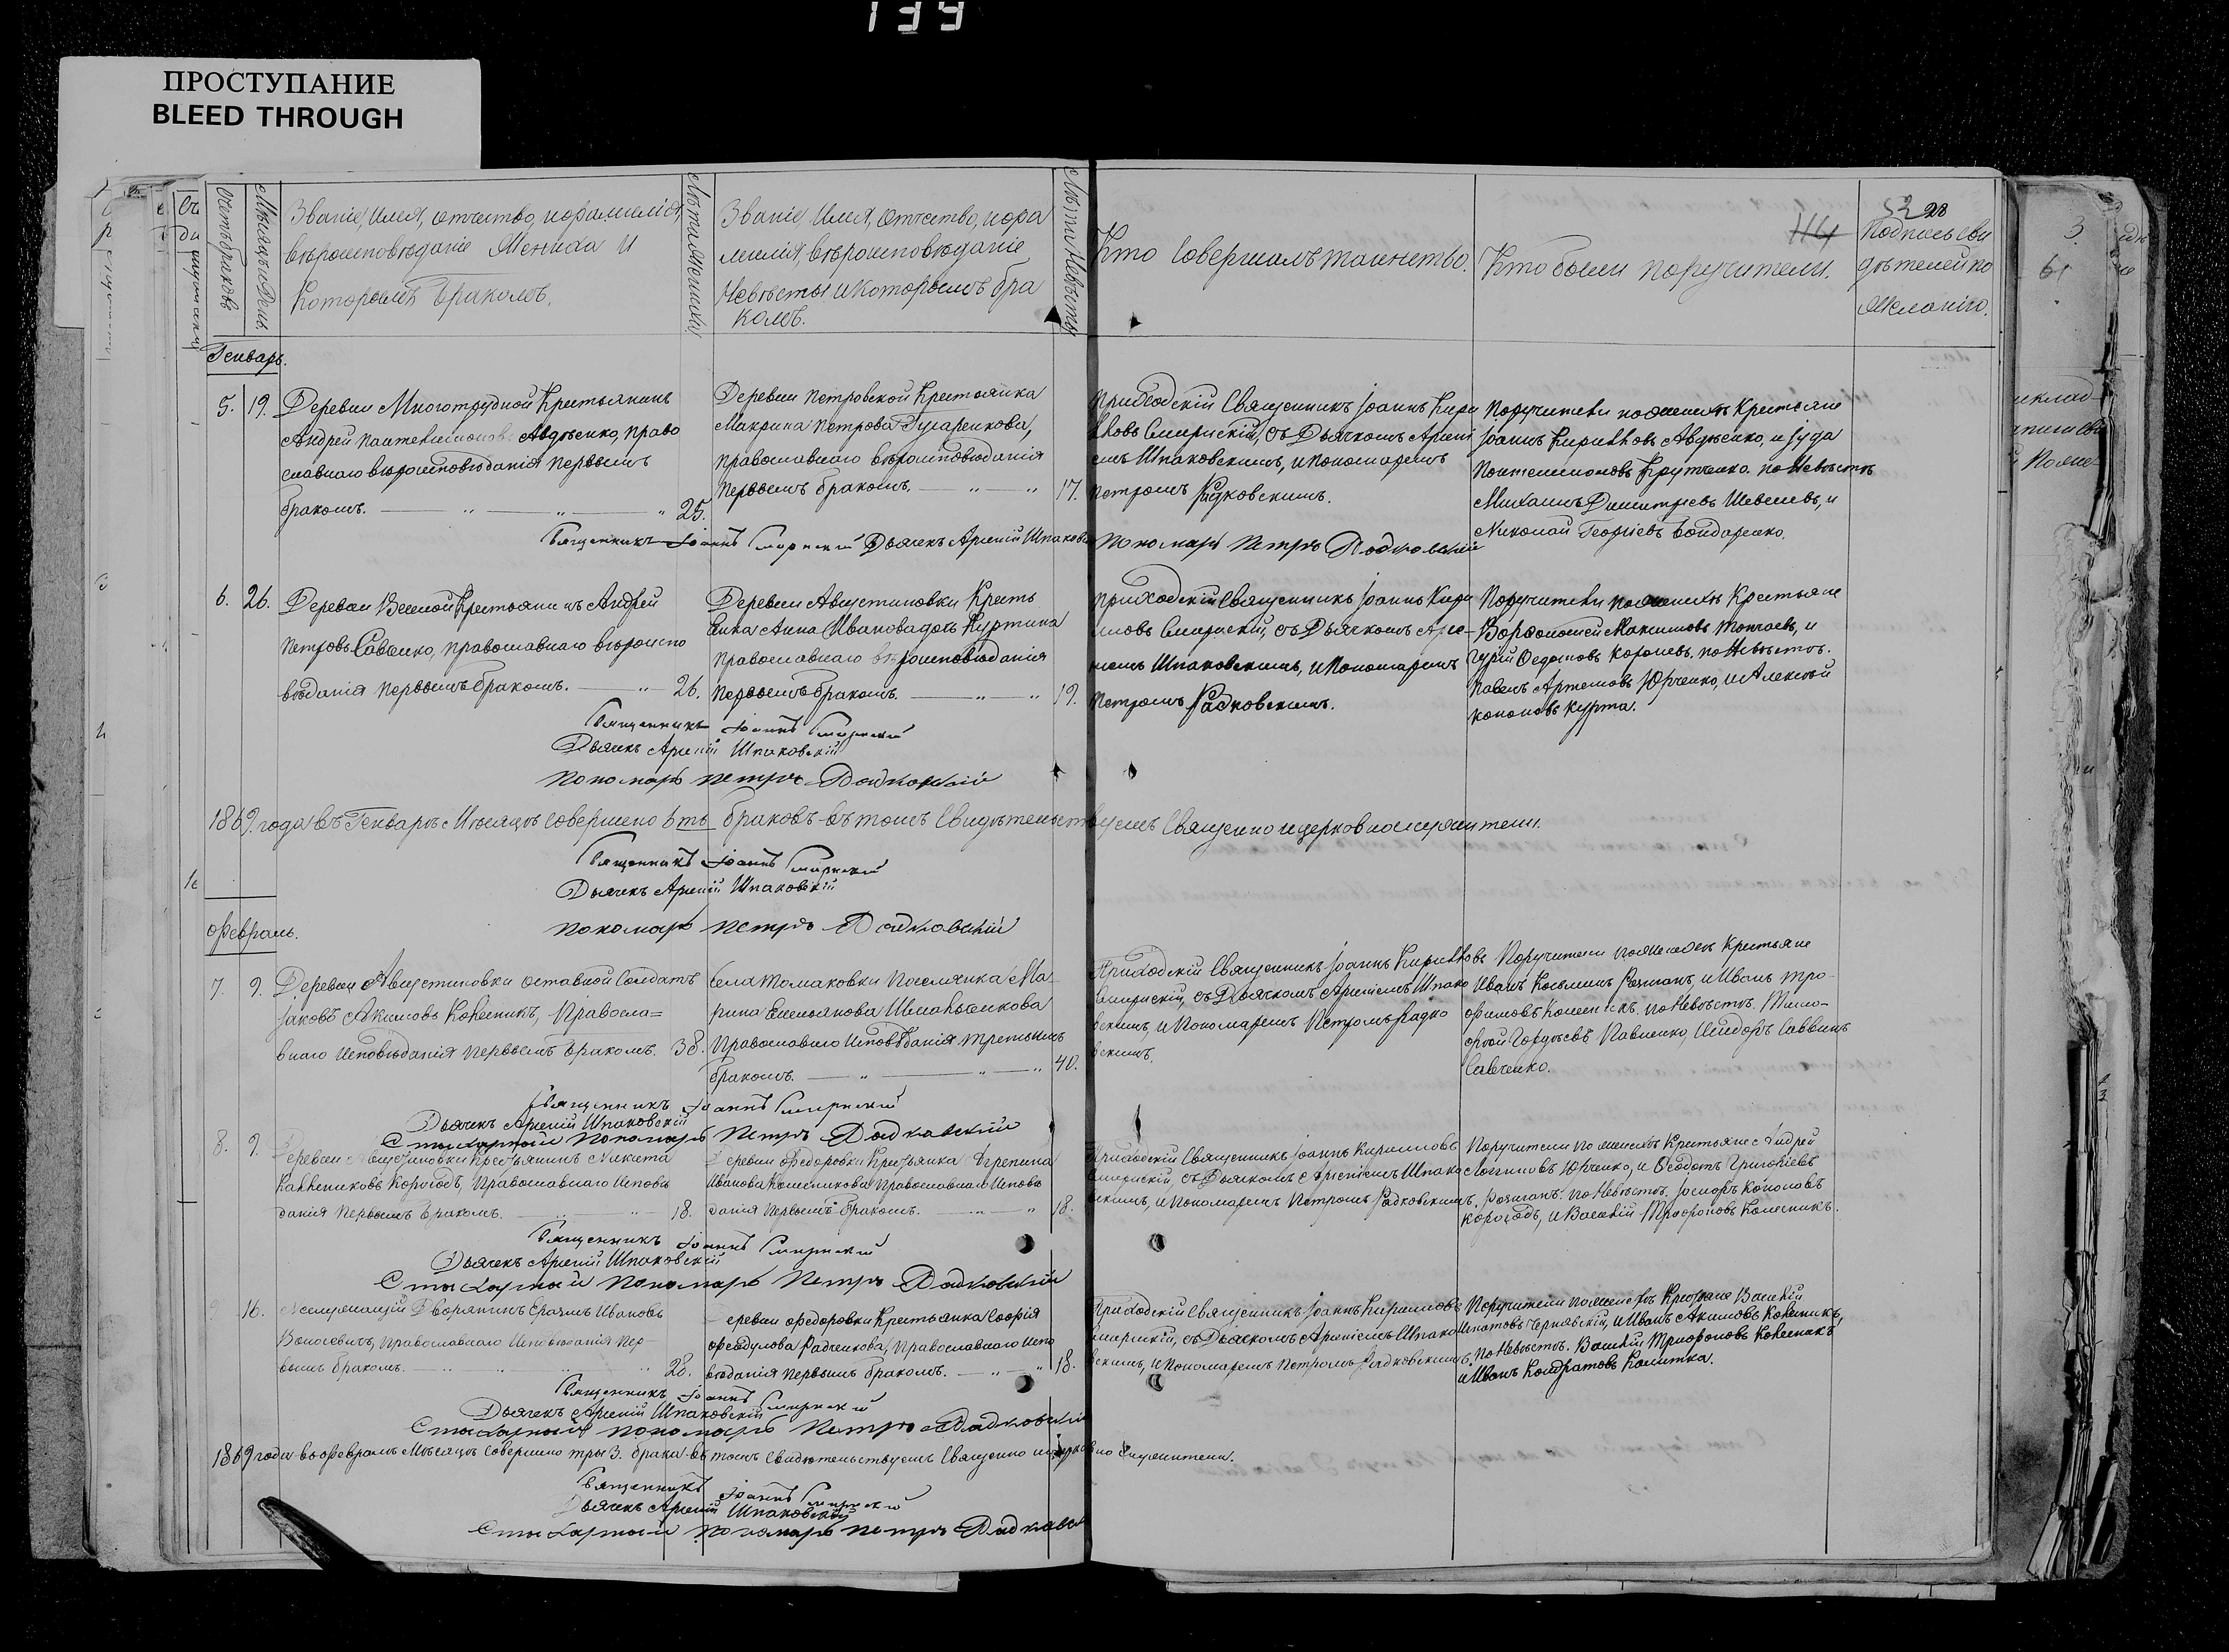 139
ПРОСТУПАНИЕ
BLEED THROUGH
Счетъ браковъ
Мѣсяцъ и День
Званіе, имя, отчество, и фамилія,
вѣроисповѣданіе Жениха и
которымъ бракомъ.
Лѣта Жениха
Званіе, имя, отчество, и фа
милія, вѣроисповѣданіе
Невѣсты и которымъ бра
комъ.
Лѣта Невѣсты
Кто совершалъ таинство.
Кто были поручители.
114
52 28
Подпись сви
дѣтелей по
желанію.
Генварь.
5. 19. Деревни Многотрудной Крестьянинъ
Андрей Пантелеимоновъ Авдѣенко, право
славнаго вѣроисповѣданія первымъ
бракомъ. 25.
Деревни Петровской Крестьянка
Макрина Петрова Гусаренкова,
православнаго вѣроисповѣданія
первымъ бракомъ. 17.
Приходскій Священникъ Іоаннъ Кири
лловъ Смирнскій, съ Дьячкомъ Арсені
емъ Шпаковскимъ, и Пономаремъ
Петромъ Радковскимъ.
Поручители по женихѣ Крестьяне
Іоаннъ Кирилловъ Авдѣенко, и Іуда
Пантелеимоновъ Крутченко. по Невѣстѣ
Михаилъ Димитріевъ Шевелевъ, и
Николай Георгіевъ Бондаренко.
Священникъ Іоаннъ Смирнскій Дьячекъ Арсеній Шпаковс
Пономарь Петръ Радковскій
6. 26. Деревни Веселой Крестьянинъ Андрей
Петровъ Савенко, православнаго вѣроиспо
вѣданія первымъ бракомъ. 26.
Деревни Августиновки Кресть
янка Анна Иванова дочь Куртина
православнаго вѣроисповѣданія
первымъ бракомъ. 19.
Приходскій Священникъ Іоаннъ Кири
лловъ Смирнскій, съ Дьячкомъ Арсе-
ніемъ Шпаковскимъ, и Пономаремъ
Петромъ Радковскимъ.
Поручители по женихѣ Крестьяне
Варфоломей Максимовъ Толчаевъ, и
Гурій Федотовъ Королевъ. по Невѣстѣ.
Павелъ Артемовъ Юрченко, и Алексѣй
Кононовъ Курта.
Священникъ Іоаннъ Смирнскій
Дьячекъ Арсеній Шпаковскій
Пономарь Петръ Радковскій
1869. года въ Генварѣ Мѣсяцѣ совершено 6ть браковъ въ томъ Свидѣтельствуемъ Священно и церковнослужители.
Священникъ Іоаннъ Смирнскій
Дьячекъ Арсеній Шпаковскій
Пономарь Петръ Радковскій
Февраль.
7. 9. Деревни Августиновки отставной Солдатъ
Іаковъ Акимовъ Колесникъ, Правосла=
внаго Исповѣданія первымъ бракомъ. 38.
Села Томаковки Поселянка Ма-
рина Емельянова
Православнаго Исповѣданія третьимъ
бракомъ. 40.
Приходскій Священникъ Іоаннъ Кирилловъ
Смирнскій, съ Дьячкомъ Арсеніемъ Шпако
вскимъ, и Пономаремъ Петромъ Радко
вскимъ.
Поручители по женихѣ Крестьяне
Иванъ Косьминъ Рахманъ, и Иванъ Тро-
фимовъ Колесникъ. по Невѣстѣ. Тимо-
фѣй Гордѣевъ Павленко, Исидоръ Саввинъ
Савченко.
Священникъ Іоаннъ Смирнскій
Дьячекъ Арсеній Шпаковскій
Стихарный Пономарь Петръ Радковскій
8. 9. Деревни Августиновки Крестьянинъ Никита
Каллениковъ Корогодъ, Православнаго Исповѣ
данія первымъ бракомъ. 18.
Деревни Федоровки Крестьянка Агрепина
Иванова Колесникова, Православнаго Исповѣ
данія первымъ бракомъ. 18.
Приходскій Священникъ Іоаннъ Кирилловъ
Смирнскій, съ Дьячкомъ Арсеніемъ Шпако
вскимъ, и Пономаремъ Петромъ Радковскимъ.
Поручители по женихѣ Крестьяне Андрей
Логгиновъ Юрченко, и Феодотъ Григоріевъ
Рахманъ. по Невѣстѣ, Іосифъ Кононовъ
Корогодъ, и Василій Трофоновъ Колесникъ.
Священникъ Іоаннъ Смирнскій
Дьячекъ Арсеній Шпаковскій
Стихарный Пономарь Петръ Радковскій
9. 16. Неслужащій Дворянинъ Еразмъ Ивановъ
Православнаго Исповѣданія пер-
вымъ бракомъ. 28.
Деревни Федоровки Крестьянка Софія
Федулова Радченкова, Православнаго Испо
вѣданія первымъ бракомъ. 18.
Приходскій Священникъ Іоаннъ Кирилловъ
Смирнскій, съ Дьячкомъ Арсеніемъ Шпако
вскимъ, и Пономаремъ Петромъ Радковскимъ.
Поручители по женихѣ Крестьяне Василій
Игнатовъ Чернявскій, и Иванъ Акимовъ Колесникъ,
по Невѣстѣ. Василій Трифоновъ Колесникъ
и Иванъ Кондратовъ Калитка.
Священникъ Іоаннъ Смирнскій
Дьячекъ Арсеній Шпаковскій
Стихарный Пономарь Петръ Радковскій
1869 года въ Февралѣ Мѣсяцѣ совершено три 3. брака въ томъ Свидѣтельствуемъ Священно и церковно служители.
Священникъ Іоаннъ Смирнскій
Дьячекъ Арсеній Шпаковскій
Стихарный Пономарь Петръ Радковск